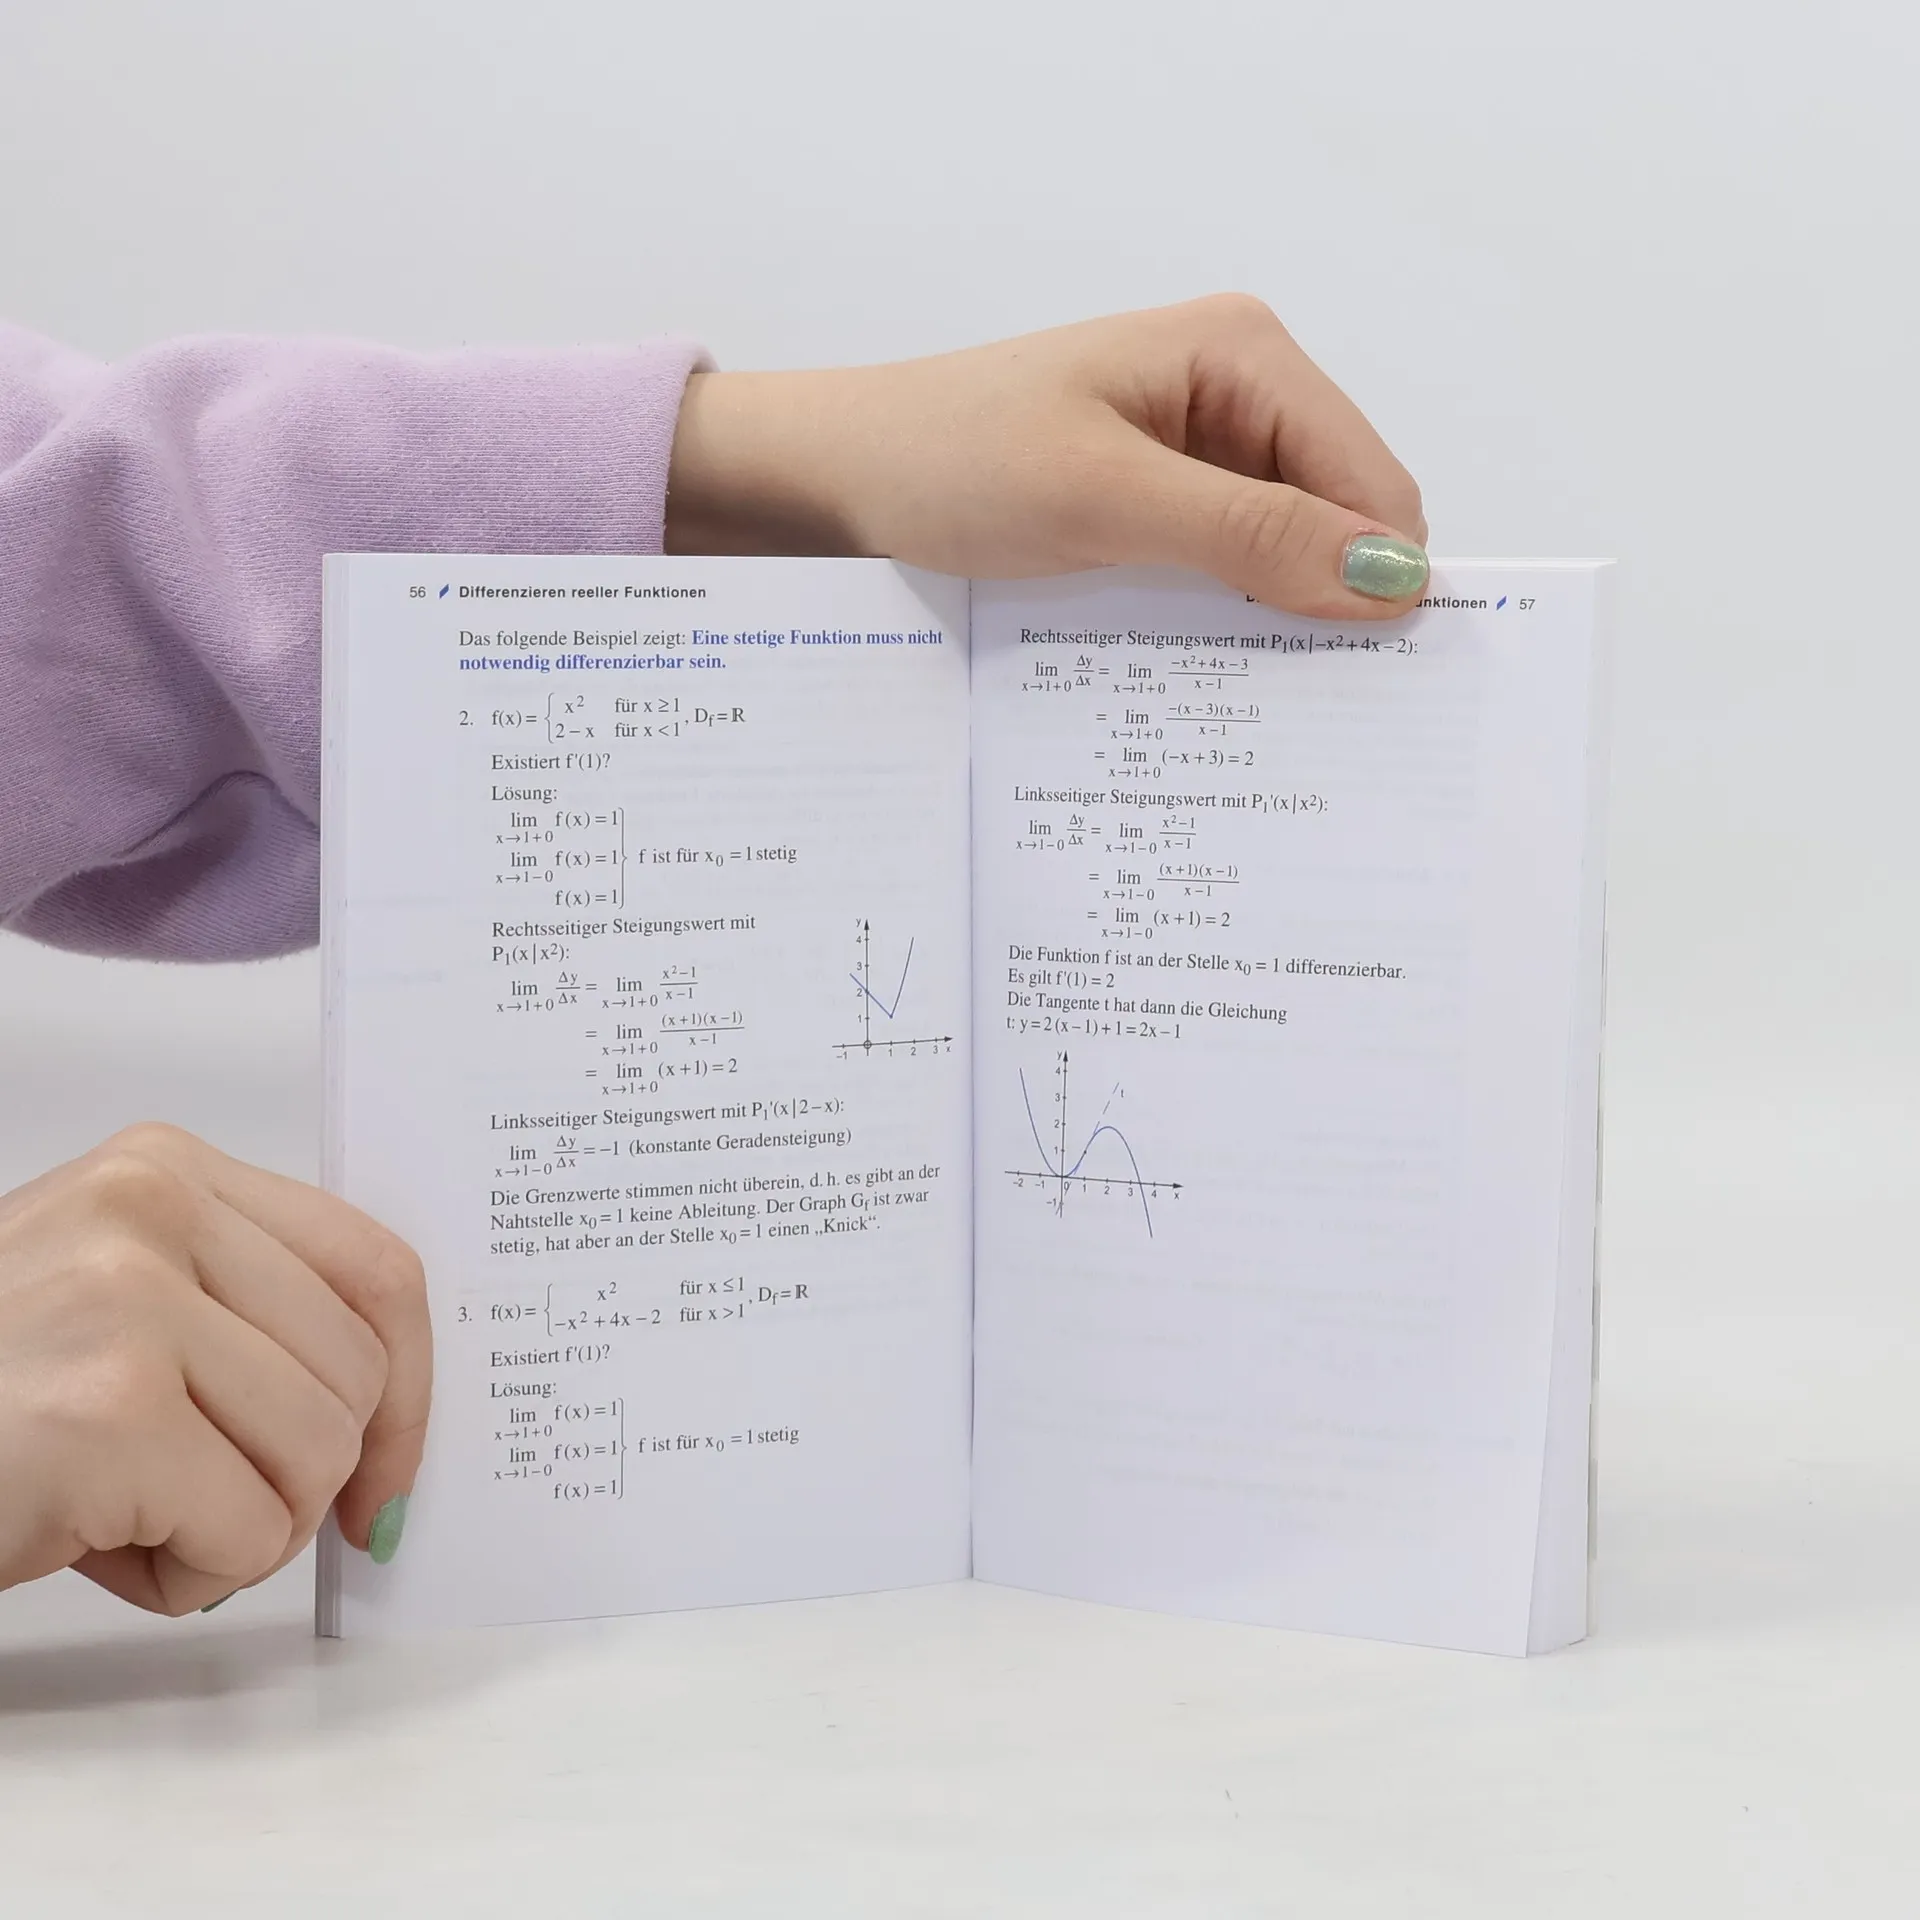 56 Differenzieren reeller Funktionen
Das folgende Beispiel zeigt: Eine stetige Funktion muss nicht
notwendig differenzierbar sein.
2. f(x) = { x² für x ≥ 1
2 − x für x < 1 , D_f = ℝ
Existiert f'(1)?
Lösung:
lim f(x) = 1
x→1+0
lim f(x) = 1 } f ist für x₀ = 1 stetig
x→1−0
f(x) = 1
Rechtsseitiger Steigungswert mit
P₁(x|x²):
lim Δy/Δx = lim (x²−1)/(x−1)
x→1+0 x→1+0
= lim (x+1)(x−1)/(x−1)
x→1+0
= lim (x+1) = 2
x→1+0
y
4
3
2
1
−1 1 2 3 x
Linksseitiger Steigungswert mit P₁'(x|2−x):
lim Δy/Δx = −1 (konstante Geradensteigung)
x→1−0
Die Grenzwerte stimmen nicht überein, d. h. es gibt an der
Nahtstelle x₀ = 1 keine Ableitung. Der Graph G_f ist zwar
stetig, hat aber an der Stelle x₀ = 1 einen „Knick“.
3. f(x) = { x² für x ≤ 1
−x² + 4x − 2 für x > 1 , D_f = ℝ
Existiert f'(1)?
Lösung:
lim f(x) = 1
x→1+0
lim f(x) = 1 } f ist für x₀ = 1 stetig
x→1−0
f(x) = 1
57
Rechtsseitiger Steigungswert mit P₁(x|−x²+4x−2):
lim Δy/Δx = lim (−x²+4x−3)/(x−1)
x→1+0 x→1+0
= lim −(x−3)(x−1)/(x−1)
x→1+0
= lim (−x+3) = 2
x→1+0
Linksseitiger Steigungswert mit P₁'(x|x²):
lim Δy/Δx = lim (x²−1)/(x−1)
x→1−0 x→1−0
= lim (x+1)(x−1)/(x−1)
x→1−0
= lim (x+1) = 2
x→1−0
Die Funktion f ist an der Stelle x₀ = 1 differenzierbar.
Es gilt f'(1) = 2
Die Tangente t hat dann die Gleichung
t: y = 2(x−1)+1 = 2x−1
y
4
t
3
2
1
−2 −1 0 1 2 3 4 x
−1